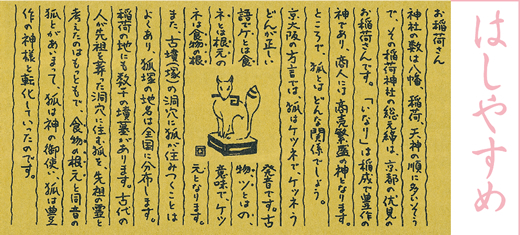 はしやすめ
お稲荷さん
神社の数は八幡、稲荷、天神の順に多いそう
で、その稲荷神社の総元締は、京都の伏見の
お稲荷さんです。「いなり」は稲成で豊作の
神であり、商人には商売繁盛の神となります。
ところで、狐とはどんな関係でしょう。
京大阪の方言では、狐はケツネで、ケツネう
どんが正しい発音です。古
語でケとは食物、ツとはの、
ネとは根元の意味で、ケツ
ネは食物の根元となります。
また、古墳(塚)の洞穴に狐が住みつくことは
よくあり、狐塚の地名は全国に分布します。
稲荷の地にも数千の墳墓があります。古代の
人が先祖を葬った洞穴に住む狐を、先祖の霊と
考えたのはもっともで、食物の根元と同音の
狐とがあいまって、狐は神の御使い、狐は豊
作の神様と転化していったのです。